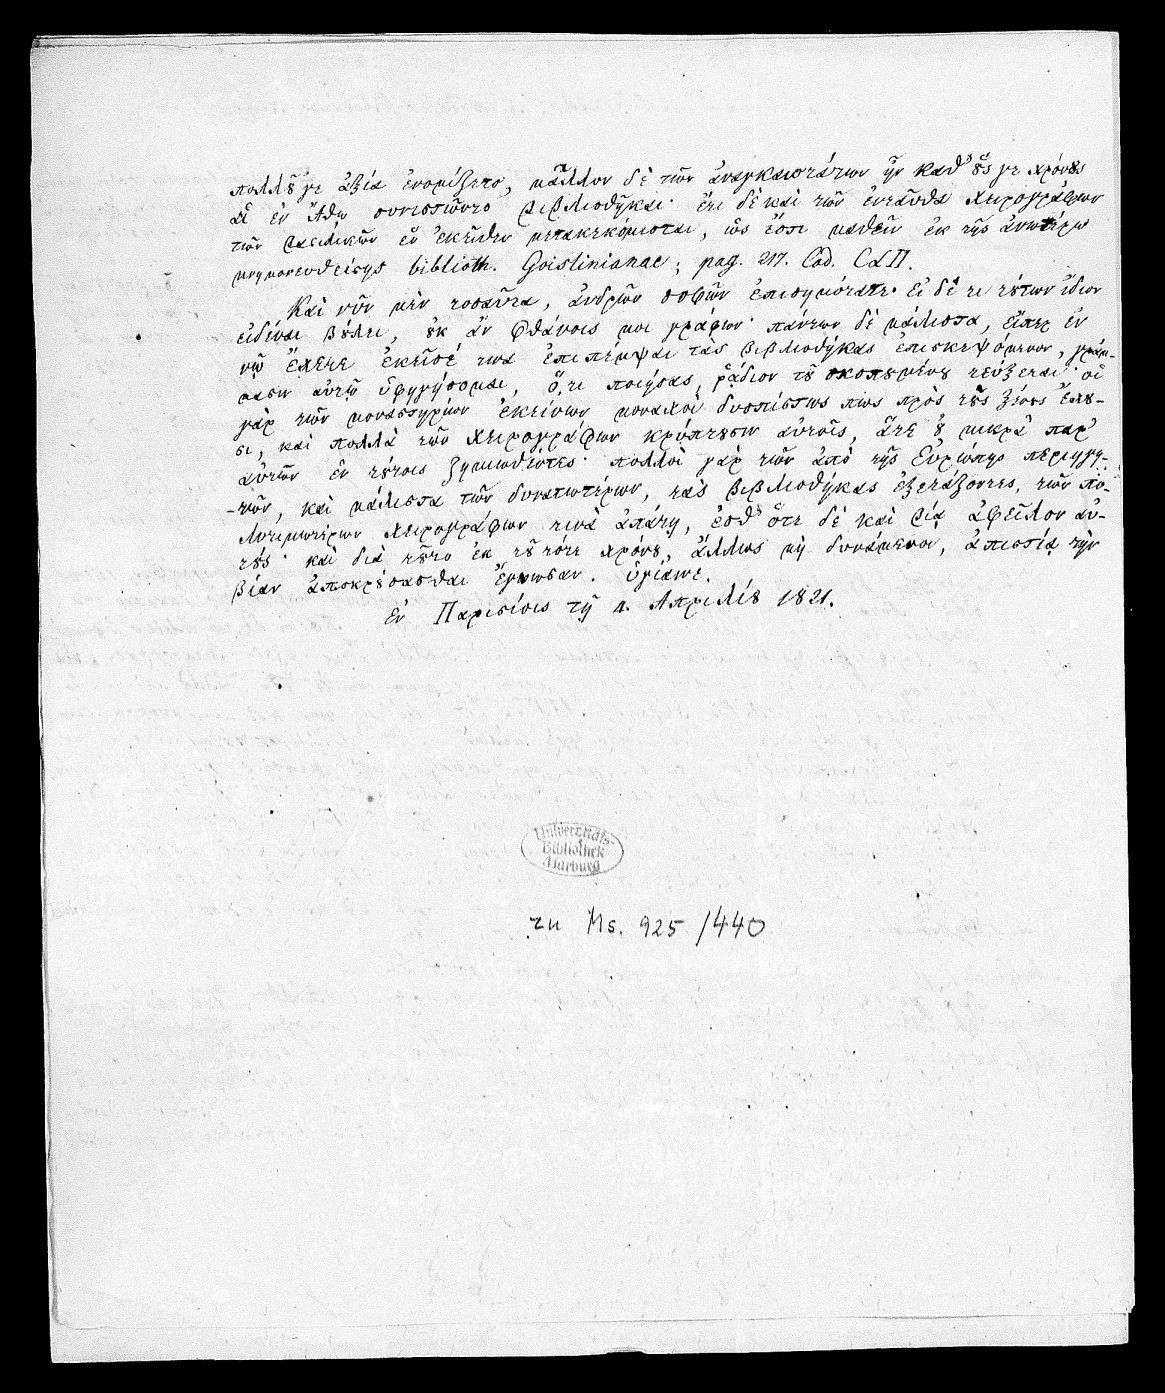 πολλȣ͂ γε ἀξία ἐνομίζετο, μᾶλλον δὲ τῶν ἀναγκαιοτάτων ἦν καθ' ȣ̔́ς γε χρόνȣς
αἱ ἐν Ἄθῳ συνιστῶντο βιβλιοθῆκαι· ἔτι δὲ καὶ τῶν ἐνταῦθα χειρογράφων
τῶν βασιλικῶν ἓν ἐκεῖθεν μετακεκόμισται, ὥς ἐστι μαθεῖν ἐκ τῆς ἀνωτέρω
μνημονευθείσης biblioth. Coislinianae; pag. 217. Cod.
Καὶ νῦν μὲν τοσαῦτα, ἀνδρῶν σοφῶν ἐπισημότατε· εἰ δέ τι τȣ́των ἴδιον
εἰδέναι βȣ́λει, ȣ̓κ ἂν φθάνοις μοι γράφων· πάντων δὲ μάλιστα, εἴπερ ἐν
νῷ ἔχετε ἐκεῖσέ τινα ἐπιπέμψαι τὰς βιβλιοθήκας ἐπισκεψόμενον, γράμ-
μασιν αὐτῷ ὑφηγήσομαι, ὅ,τι ποιήσας, ῥᾴδιον τȣ͂ σκοπȣμένȣ τεύξεται· οἱ
γὰρ τῶν μοναστηρίων ἐκείνων μοναχοὶ δυσπίστως πως πρὸς τȣ̀ς ξένȣς ἔχȣ-
σι, καὶ πολλὰ τῶν χειρογράφων κρύπτȣσιν αὐτοῖς, ἅτε ȣ̓ μικρὰ παρ'
αὐτῶν ἐν τȣ́τοις ζημιωθέντες· πολλοὶ γὰρ τῶν ἀπὸ τῆς Εὐρώπης περιηγη-
-τῶν, καὶ μάλιστα τῶν δυνατωτέρων, τὰς βιβλιοθήκας ἐξετάζοντες, τῶν πο-
λυτιμωτέρων χειρογράφων τινὰ ἀπάτῃ, ἔσθ' ὅτε δὲ καὶ βίᾳ ἀφεῖλον αὐ-
τȣ́ς· καὶ διὰ τȣ͂το ἐκ τȣ͂ τότε χρόνȣ, ἄλλως μὴ δυνάμενοι, ἀπιστίᾳ τὴν
βίαν ἀποκρȣ́σασθαι ἔγνωσαν. ὑγίαινε.
ἐν Παρισίοις τῇ 1. Ἀπριλίȣ 1821.
Universitäts-
Bibliothek
Marburg
zu Ms. 925/440